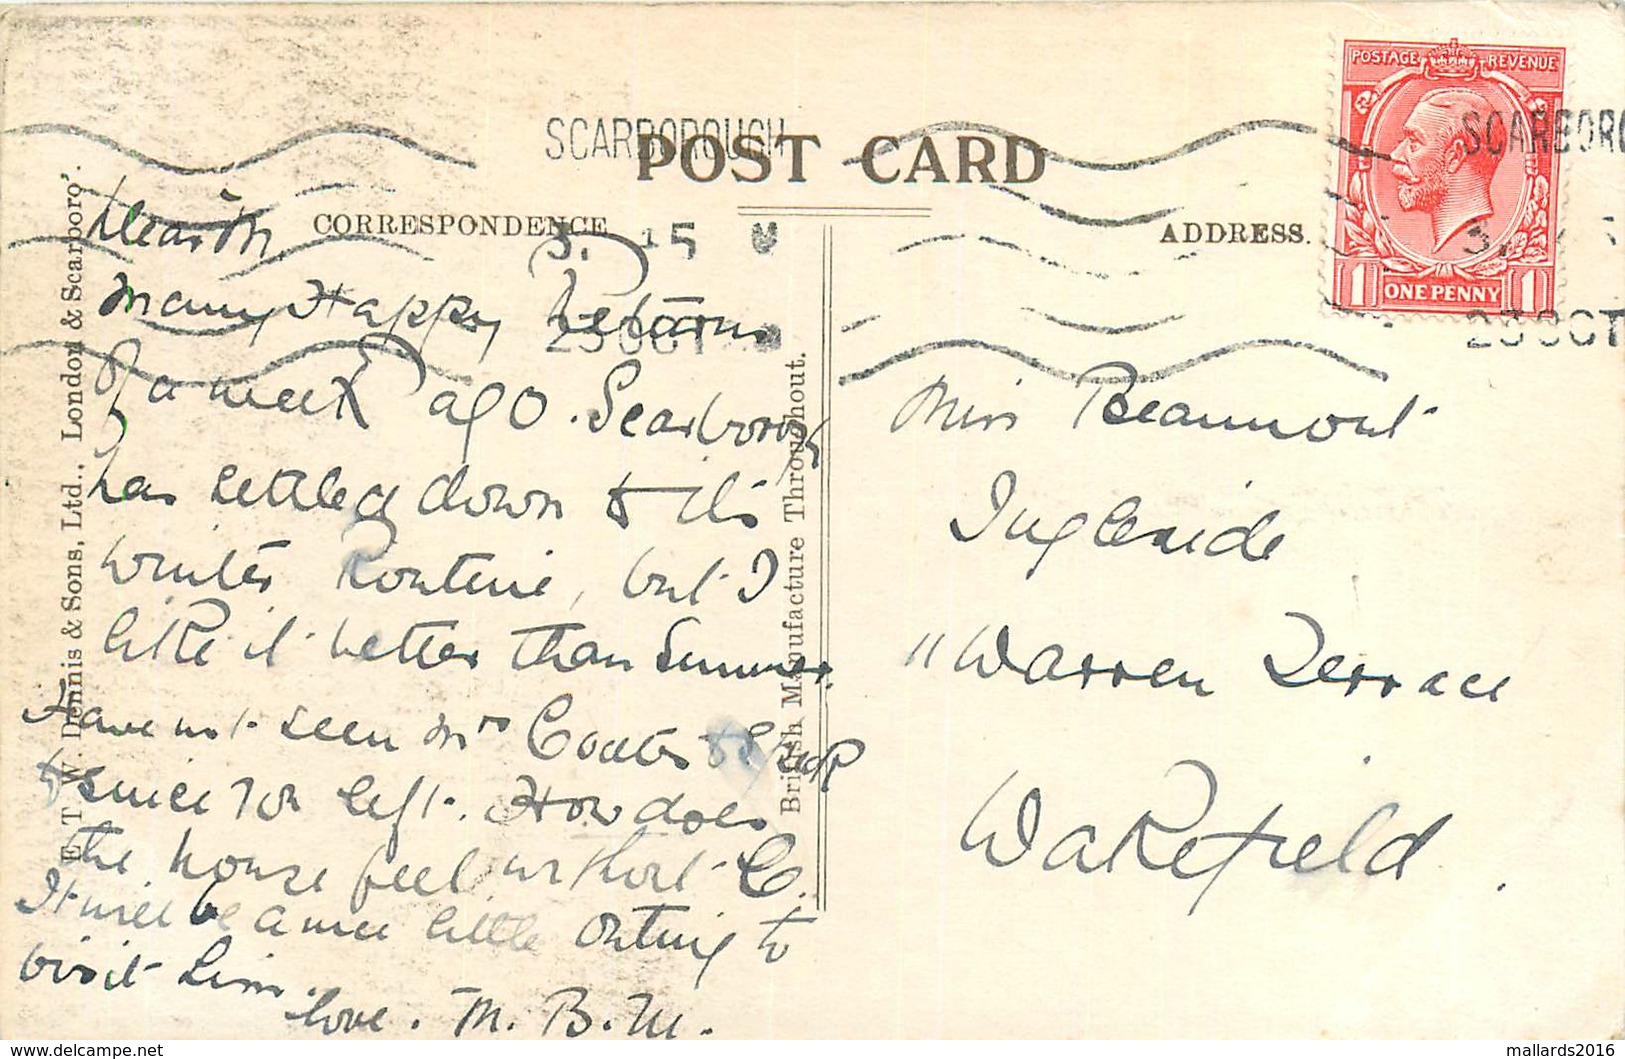 POST CARD
CORRESPONDENCE
ADDRESS.
SCARBOROUGH
3. 15
23 OCT
SCARBORO
23 OCT
POSTAGE REVENUE
1 ONE PENNY 1
E. T. W. Dennis & Sons, Ltd., London & Scarboro'.
British Manufacture Throughout.
Dear M
Many Happy Returns
of a week ago. Scarborough
has settled down to its
winter Routine, but I
like it better than Summer.
Have not seen Mrs Coates
since you left. How does
the house feel without C.
It will be a nice little outing to
visit him.
love. M. B. M.
Miss Beaumont
Ingleside
"Warren Terrace
Wakefield.
mallards2016